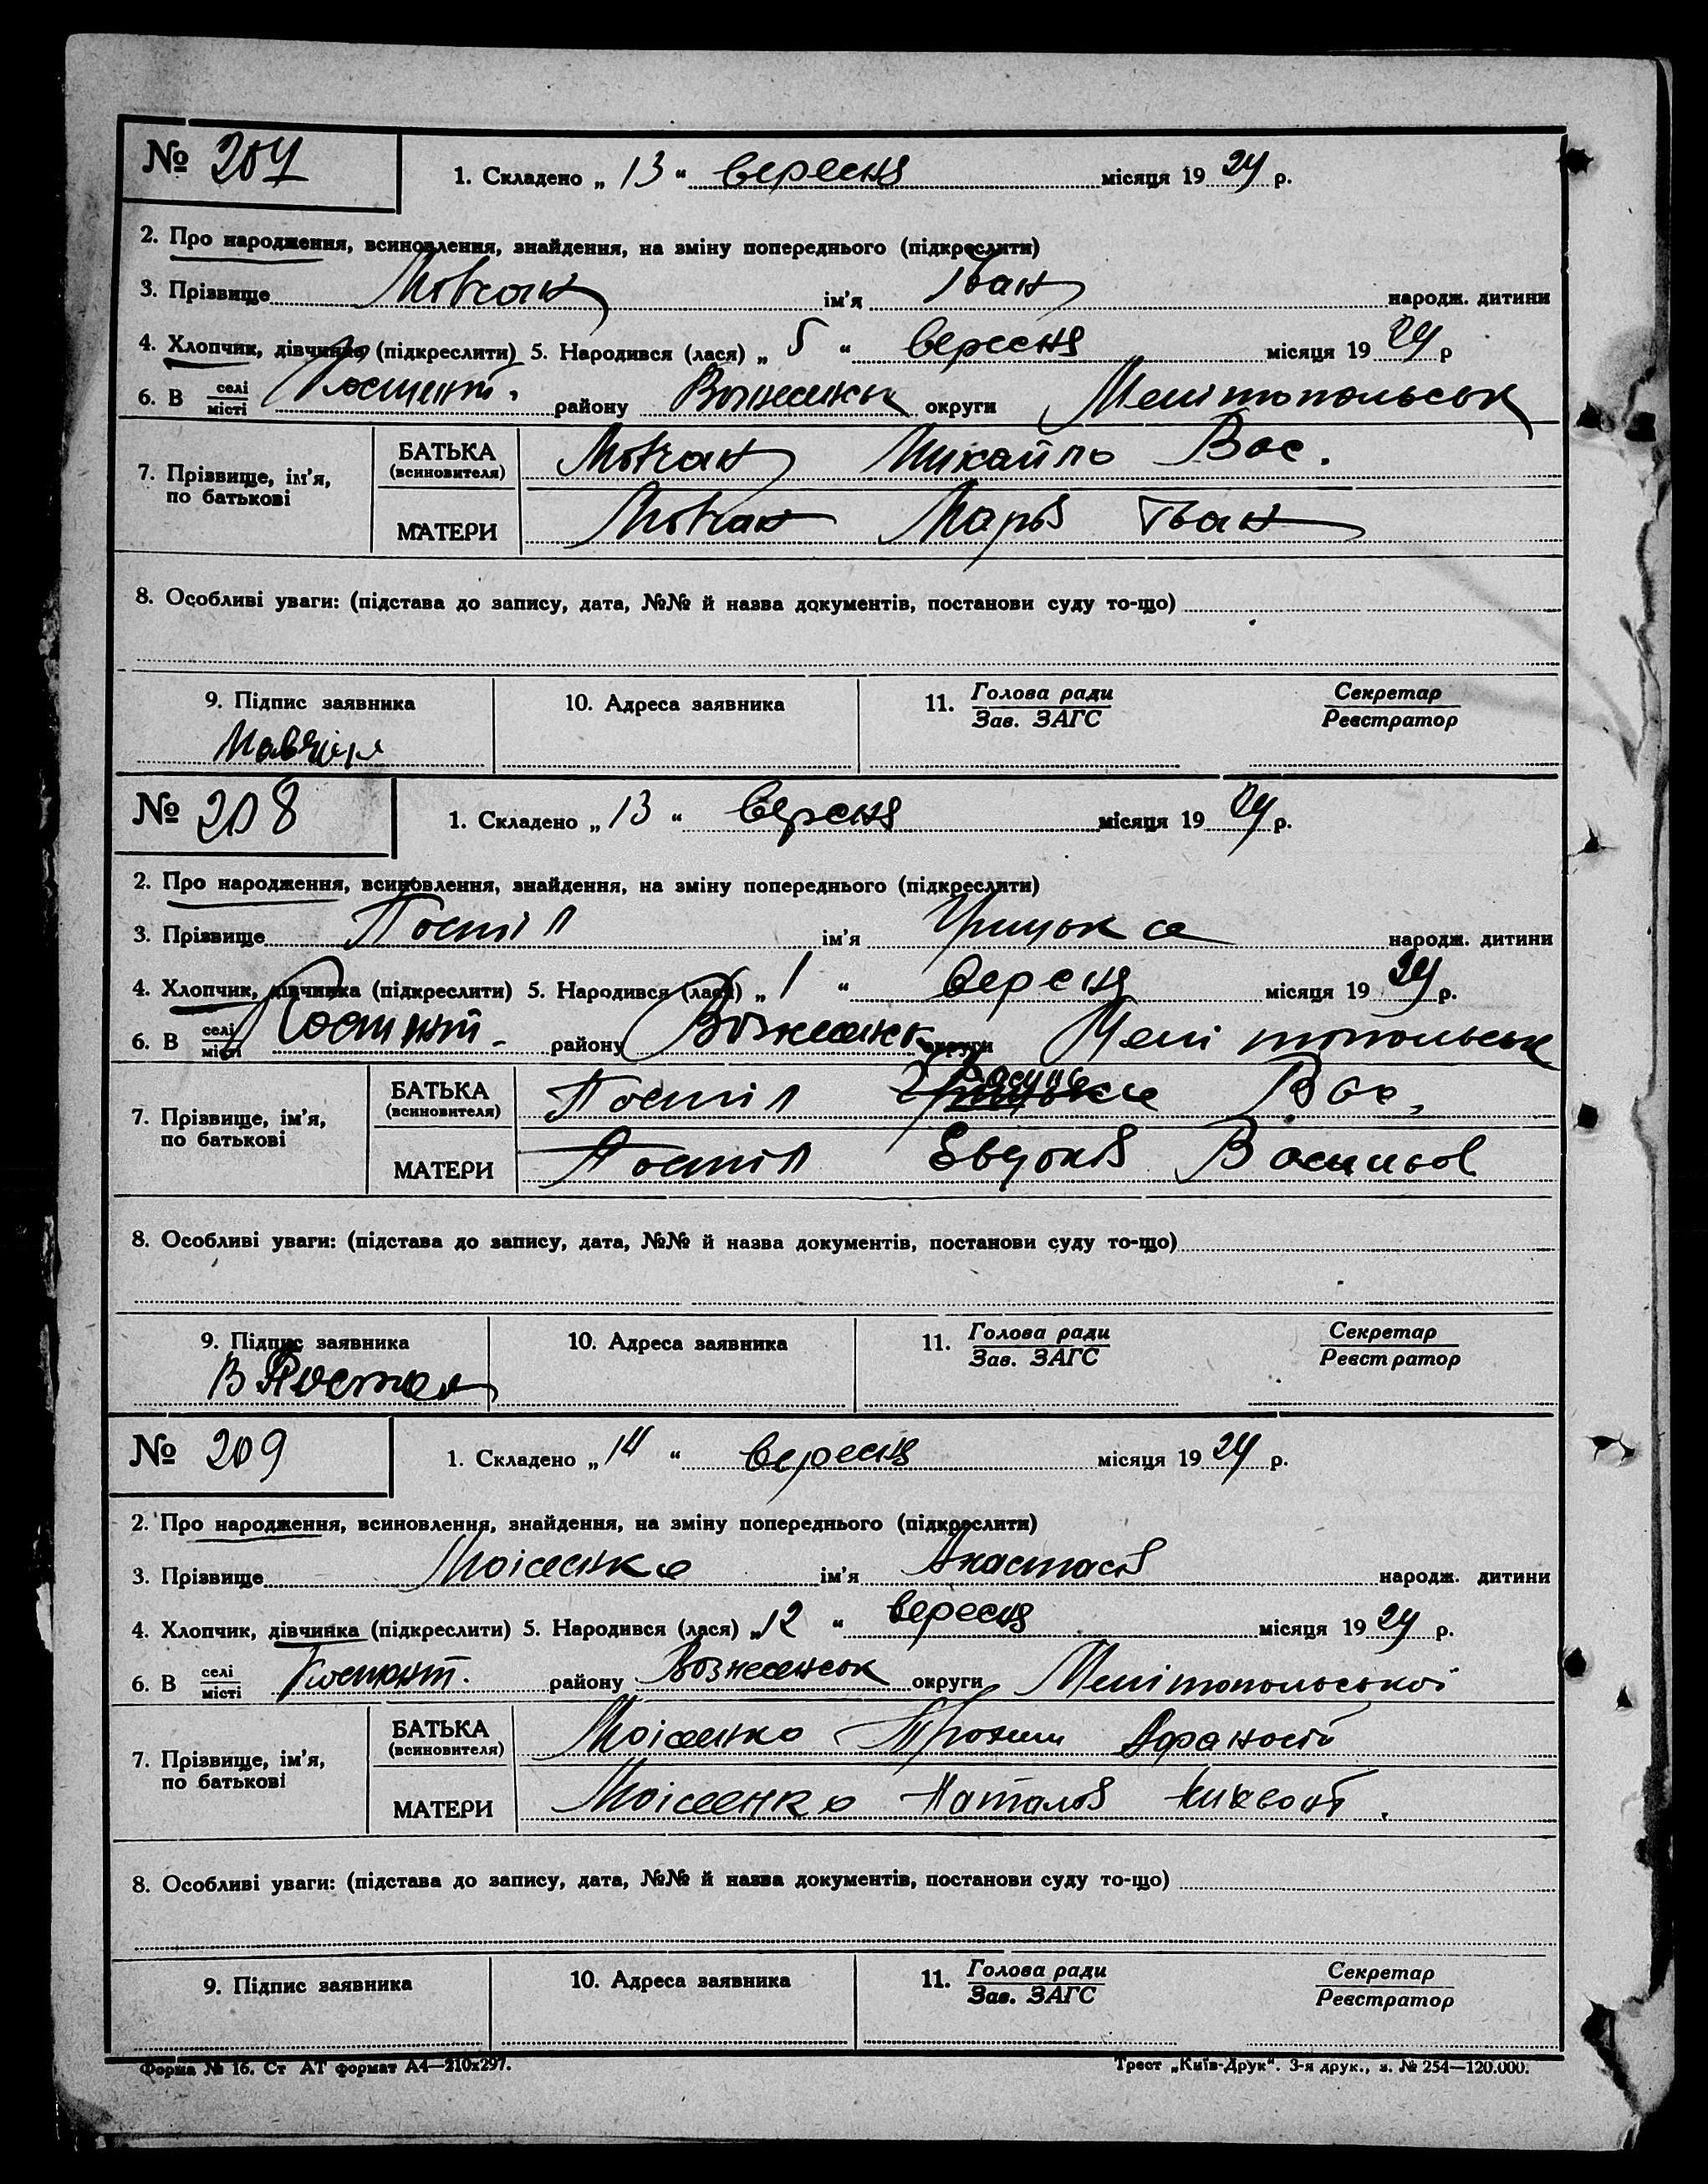 № 207 1. Складено „ 13 “ вересня місяця 19 24 р.
2. Про народження, всиновлення, знайдення, на зміну попереднього (підкреслити)
3. Прізвище Мовчан ім'я Іван народж. дитини
4. Хлопчик, дівчинка (підкреслити) 5. Народився (лася) „ 5 “ вересня місяця 19 24 р
6. В селі місті Костянт. району Вознесенськ округи Мелітопольськ
7. Прізвище, ім'я, по батькові
БАТЬКА (всиновителя) Мовчан Михайло Вас.
МАТЕРИ Мовчан Марья Іван
8. Особливі уваги: (підстава до запису, дата, №№ й назва документів, постанови суду то-що)
9. Підпис заявника 10. Адреса заявника 11. Голова ради Зав. ЗАГС Секретар Реєстратор
Мавчан
№ 208 1. Складено „ 13 “ вересня місяця 19 24 р.
2. Про народження, всиновлення, знайдення, на зміну попереднього (підкреслити)
3. Прізвище Постіл ім'я народж. дитини
4. Хлопчик, дівчинка (підкреслити) 5. Народився (лася) „ 1 “ вересня місяця 19 24 р.
6. В селі місті Костянт. району Вознесенськ округи Мелітопольськ
7. Прізвище, ім'я, по батькові
БАТЬКА (всиновителя) Постіл Вас.
МАТЕРИ Постіл Евдокія Васильов
8. Особливі уваги: (підстава до запису, дата, №№ й назва документів, постанови суду то-що)
9. Підпис заявника 10. Адреса заявника 11. Голова ради Зав. ЗАГС Секретар Реєстратор
В Постол
№ 209 1. Складено „ 14 “ вересня місяця 19 24 р.
2. Про народження, всиновлення, знайдення, на зміну попереднього (підкреслити)
3. Прізвище Моісеенко ім'я Анастасія народж. дитини
4. Хлопчик, дівчинка (підкреслити) 5. Народився (лася) „ 12 “ вересня місяця 19 24 р.
6. В селі місті Костянт. району Вознесенськ округи Мелітопольської
7. Прізвище, ім'я, по батькові
БАТЬКА (всиновителя) Моісеенко Трохим Афанасій
МАТЕРИ Моісеенко Наталія
8. Особливі уваги: (підстава до запису, дата, №№ й назва документів, постанови суду то-що)
9. Підпис заявника 10. Адреса заявника 11. Голова ради Зав. ЗАГС Секретар Реєстратор
Форма № 16. Ст АТ формат А4—210х297. Трест „Київ-Друк“. 3-я друк., з. № 254—120.000.